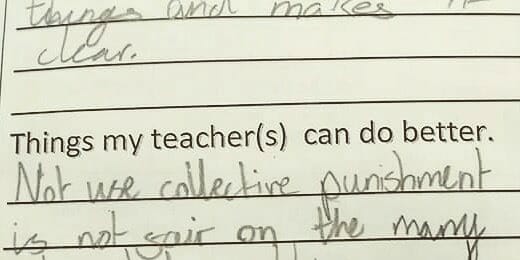 things and makes
clear.
Things my teacher(s) can do better.
Not use collective punishment
is not fair on the many